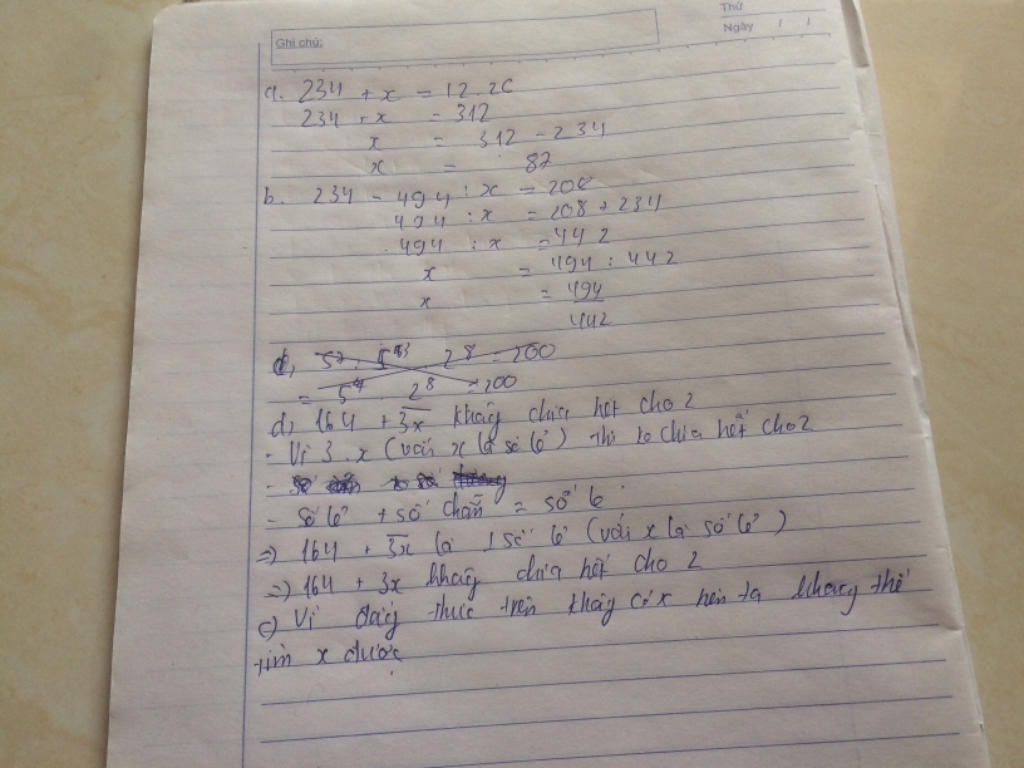 Thứ
Ngày / /
Ghi chú:
a. 234 + x = 12.26
234 + x = 312
x = 312 - 234
x = 82
b. 234 - 494 : x = 208
494 : x = 208 + 234
494 : x = 442
x = 494 : 442
x = 494
442
2^8 = 200
= 5 . 2^8 = 200
d, 164 + 3x không chia hết cho 2
- Vì 3.x (với x là số lẻ) thì ko chia hết cho 2
- Số lẻ + số chẵn = số lẻ
=> 164 + 3x là 1 số lẻ (với x là số lẻ)
=> 164 + 3x không chia hết cho 2
c) Vì đẳng thức trên không có x nên ta không thể
tìm x được